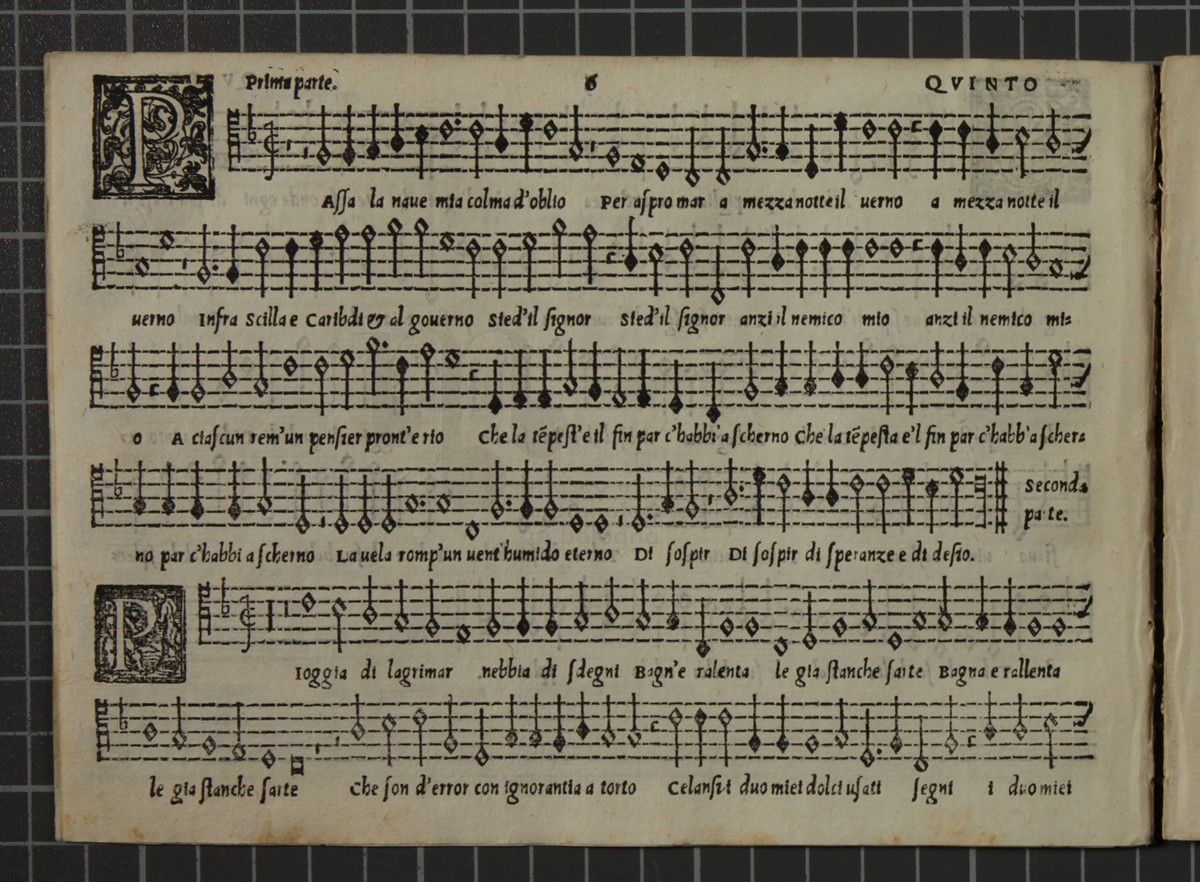 Prima parte. 6 QVINTO
PAſſa la naue mia colma d'oblio Per aſpro mar a mezza notte il uerno a mezza notte il
uerno Infra Scilla e Caribdi & al gouerno Sied'il ſignor Sied'il ſignor anzi il nemico mio anzi il nemico mi=
o A ciaſcun rem'un penſier pront'e rio Che la tẽpeſt'e il fin par c'habbi'a ſcherno Che la tẽpeſta e'l fin par c'habb'a ſcher=
no par c'habbi a ſcherno La uela romp'un uent'humido eterno Di ſoſpir Di ſoſpir di ſperanze e di deſio.
Seconda
parte.
PIoggia di lagrimar nebbia di ſdegni Bagn'e ralenta le gia ſtanche ſarte Bagna e rallenta
le gia ſtanche ſarte Che ſon d'error con ignorantia a torto Celanſi i duo miei dolci uſati ſegni i duo miei